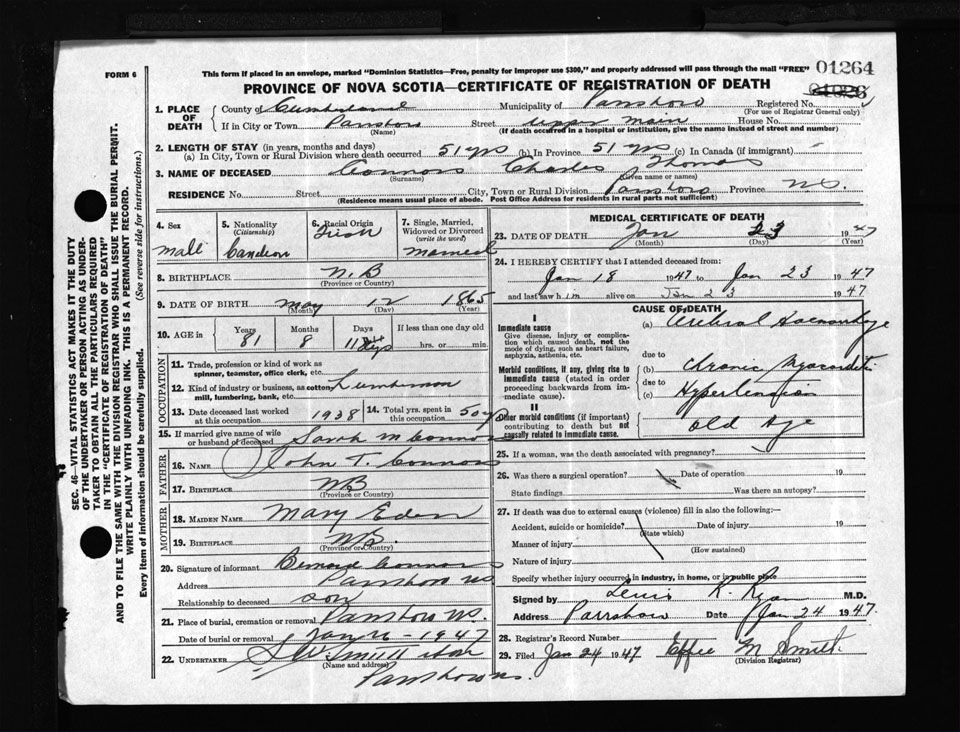 This form if placed in an envelope, marked "Dominion Statistics—Free, penalty for improper use $300," and properly addressed will pass through the mail "FREE" 01264
FORM 6
PROVINCE OF NOVA SCOTIA—CERTIFICATE OF REGISTRATION OF DEATH
SEC. 46—VITAL STATISTICS ACT MAKES IT THE DUTY
OF THE UNDERTAKER OR PERSON ACTING AS UNDER-
TAKER TO OBTAIN ALL THE PARTICULARS REQUIRED
IN THE "CERTIFICATE OF REGISTRATION OF DEATH"
AND TO FILE THE SAME WITH THE DIVISION REGISTRAR WHO SHALL ISSUE THE BURIAL PERMIT.
WRITE PLAINLY WITH UNFADING INK. THIS IS A PERMANENT RECORD.
Every item of information should be carefully supplied. (See reverse side for instructions.)
1. PLACE OF DEATH County of Cumberland Municipality of Parrsboro Registered No.
(For use of Registrar General only)
If in City or Town Parrsboro Street upper main House No.
(Name) (If death occurred in a hospital or institution, give the name instead of street and number)
2. LENGTH OF STAY (in years, months and days)
(a) In City, Town or Rural Division where death occurred 51 yrs (b) In Province 51 yrs (c) In Canada (if immigrant) -
3. NAME OF DECEASED Connors Charles Thomas
(Surname) (Given name or names)
RESIDENCE No. Street City, Town or Rural Division Parrsboro Province N.S.
(Residence means usual place of abode. Post Office Address for residents in rural parts not sufficient)
4. Sex
male
5. Nationality
(Citizenship)
Canadian
6. Racial Origin
Irish
7. Single, Married,
Widowed or Divorced
(write the word)
married
8. BIRTHPLACE N.B
(Province or Country)
9. DATE OF BIRTH may 12 1865
(Month) (Day) (Year)
10. AGE in Years Months Days If less than one day old
81 8 11 dys hrs. or min.
OCCUPATION
11. Trade, profession or kind of work as
spinner, teamster, office clerk, etc.
12. Kind of industry or business, as cotton Lumberman
mill, lumbering, bank, etc.
13. Date deceased last worked
at this occupation 1938
14. Total yrs. spent in
this occupation 50 y
15. If married give name of wife
or husband of deceased Sarah M Connors
FATHER
16. NAME John T. Connors
17. BIRTHPLACE NB
(Province or Country)
MOTHER
18. MAIDEN NAME Mary Eden
19. BIRTHPLACE NB.
(Province or Country)
20. Signature of informant Bernard Connors
Address Parrsboro NS
Relationship to deceased son
21. Place of burial, cremation or removal Parrsboro NS.
Date of burial or removal Jan 26 - 1947
22. UNDERTAKER S.W. Smith
(Name and address)
Parrsboro NS.
MEDICAL CERTIFICATE OF DEATH
23. DATE OF DEATH Jan 23 1947
(Month) (Day) (Year)
24. I HEREBY CERTIFY that I attended deceased from:
Jan 18 1947 to Jan 23 1947
and last saw him alive on Jan 23 1947
CAUSE OF DEATH
I
Immediate cause
Give disease, injury or complica-
tion which caused death, not the
mode of dying, such as heart failure,
asphyxia, asthenia, etc.
(a) Cerebral Haemorrhage
due to
Morbid conditions, if any, giving rise to
immediate cause (stated in order
proceeding backwards from im-
mediate cause).
(b) Chronic Myocarditis
due to
(c) Hypertension
II
Other morbid conditions (if important)
contributing to death but not
causally related to immediate cause.
Old Age
25. If a woman, was the death associated with pregnancy?
26. Was there a surgical operation? Date of operation 19
State findings Was there an autopsy?
27. If death was due to external causes (violence) fill in also the following:—
Accident, suicide or homicide? Date of injury 19
(State which)
Manner of injury
(How sustained)
Nature of injury
Specify whether injury occurred in industry, in home, or in public place
Signed by Lewis K. Ryan M.D.
Address Parrsboro Date Jan 24 1947
28. Registrar's Record Number
29. Filed Jan 24 1947 Effie M Smith
(Division Registrar)